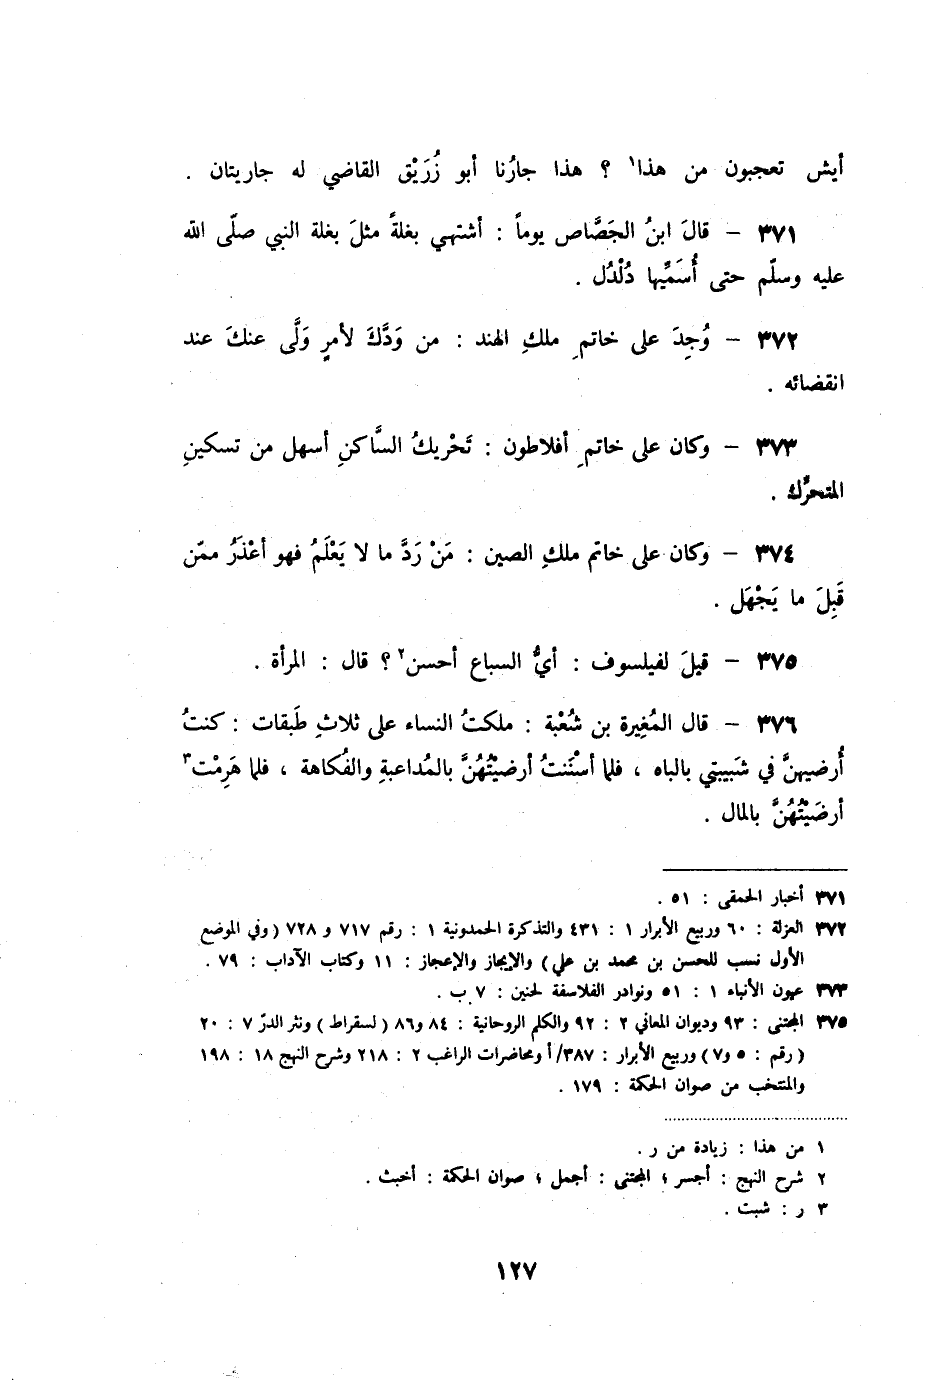 أيش تعجبون من هذا١ ؟ هذا جارُنا أبو زُرَيْق القاضي له جاريتان .
٣٧١ – قالَ ابنُ الجَصَّاص يوماً : أشتهي بغلةً مثلَ بغلة النبي صلّى الله
عليه وسلّم حتى أُسَمِّيها دُلْدُل .
٣٧٢ – وُجِدَ على خاتمِ ملكِ الهند : من وَدَّكَ لأمرٍ وَلَّى عنكَ عند
انقضائه .
٣٧٣ – وكان على خاتمِ أفلاطون : تَحْريكُ السَّاكنِ أسهل من تسكينِ
المتحرِّك .
٣٧٤ – وكان على خاتم ملكِ الصين : مَنْ رَدَّ ما لا يَعْلَمُ فهو أعْذَرُ ممّن
قَبِلَ ما يَجْهَل .
٣٧٥ – قيلَ لفيلسوف : أيُّ السباع أحسن٢ ؟ قال : المرأة .
٣٧٦ – قال المُغِيرة بن شُعْبة : ملكتُ النساء على ثلاثِ طَبقات : كنتُ
أُرضيهنَّ في شَبيبتي بالباه ، فلما أسْنَنتُ أرضيْتُهُنَّ بالمُداعبةِ والفُكاهة ، فلما هَرِمْت٣
أرضَيْتُهُنَّ بالمال .
٣٧١ أخبار الحمقى : ٥١ .
٣٧٢ العزلة : ٦٠ وربيع الأبرار ١ : ٤٣١ والتذكرة الحمدونية ١ : رقم ٧١٧ و ٧٢٨ ( وفي الموضع
الأول نسب للحسن بن محمد بن علي) والإيجاز والإعجاز : ١١ وكتاب الآداب : ٧٩ .
٣٧٣ عيون الأنباء ١ : ٥١ ونوادر الفلاسفة لحنين : ٧ ب .
٣٧٥ المجتنى : ٩٣ وديوان المعاني ٢ : ٩٢ والكلم الروحانية : ٨٤ و٨٦ ( لسقراط ) ونثر الدرّ ٧ : ٢٠
( رقم : ٥ و٧ ) وربيع الأبرار : ٣٨٧/أ ومحاضرات الراغب ٢ : ٢١٨ وشرح النهج ١٨ : ١٩٨
والمنتخب من صوان الحكمة : ١٧٩ .
١ من هذا : زيادة من ر .
٢ شرح النهج : أجسر ؛ المجتنى : أجمل ؛ صوان الحكمة : أخبث .
٣ ر : شبت .
١٢٧